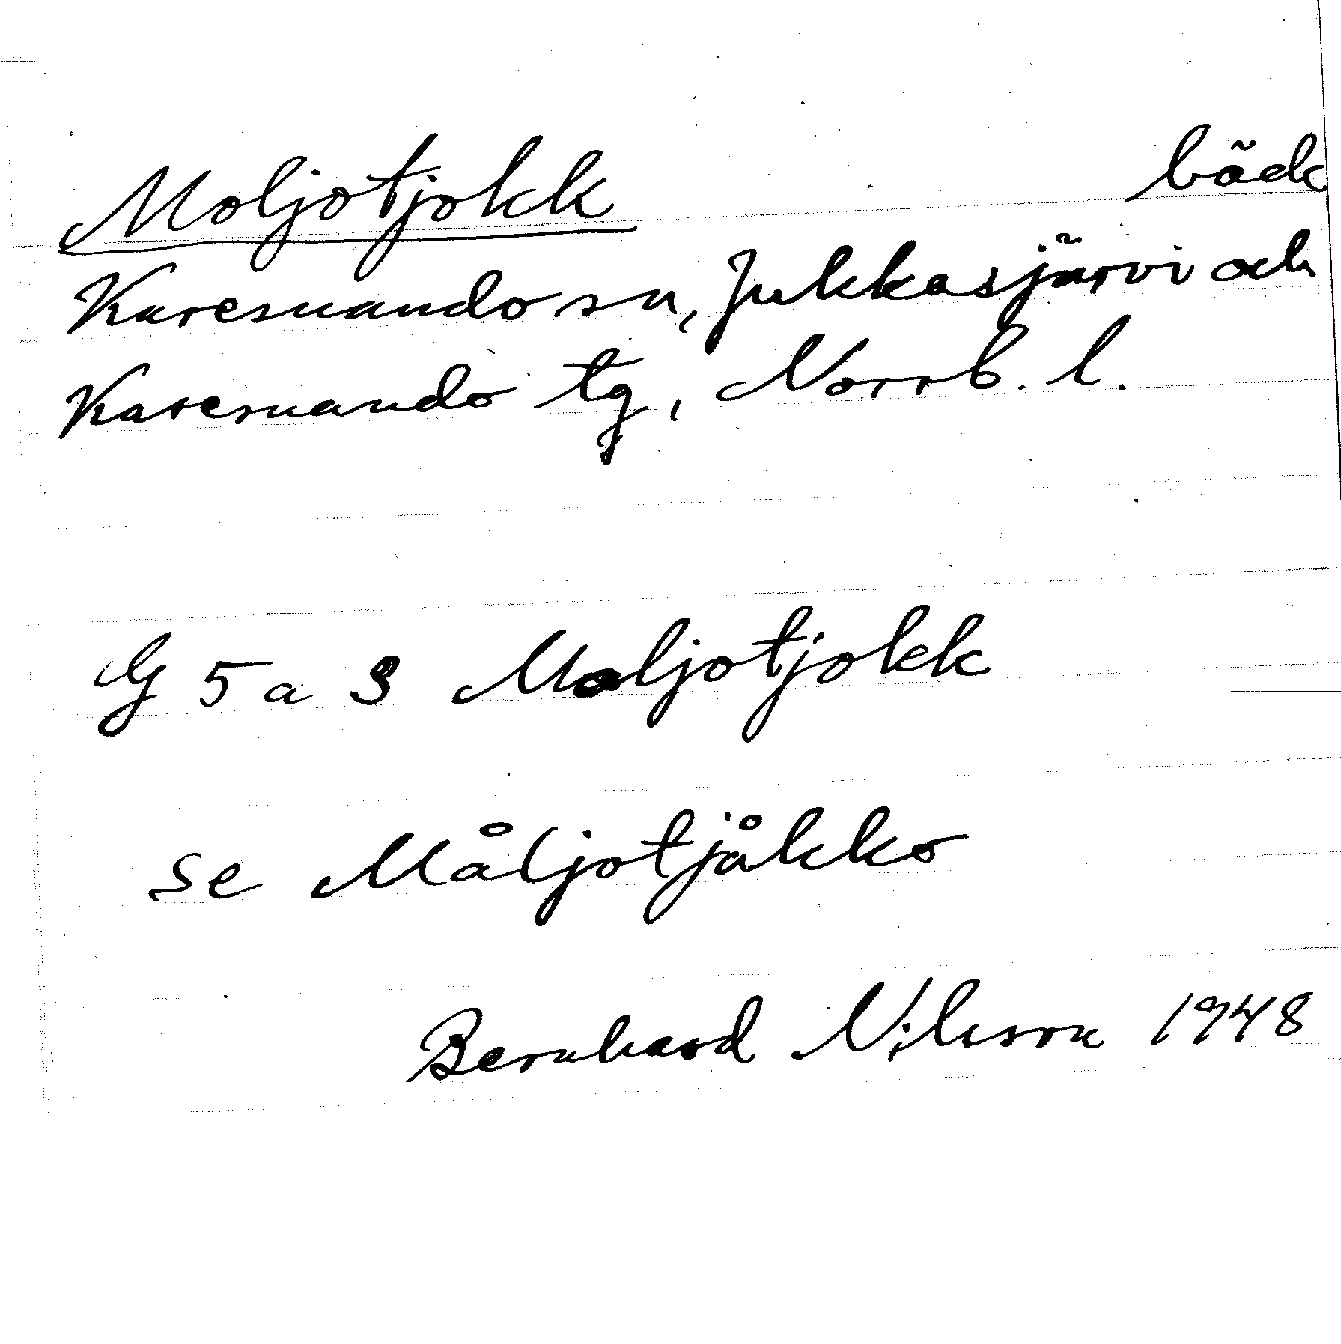 Moljotjokk bäck
Karesuando sn, Jukkasjärvi och
Karesuando tg, Norrb. l.
G 5 a 3 Moljotjokk
se Måljotjåkko
Bernhard Nilsson 1948